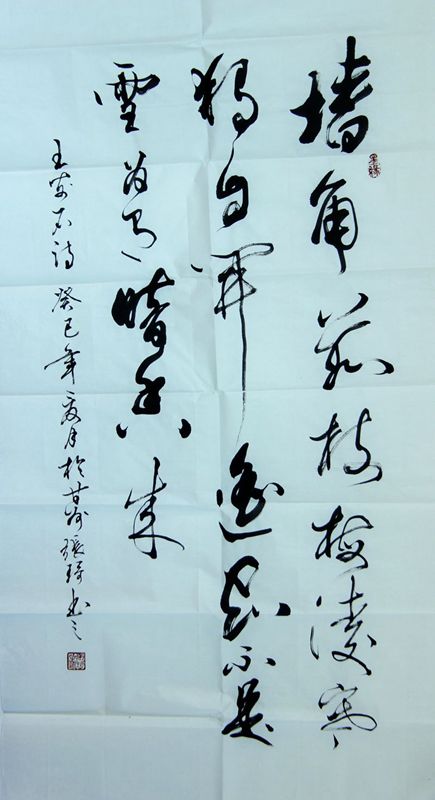 墙角数枝梅凌寒
独自开遥知不是
雪为有暗香来
王安石诗 癸巳年夏月於甘州張琦书之